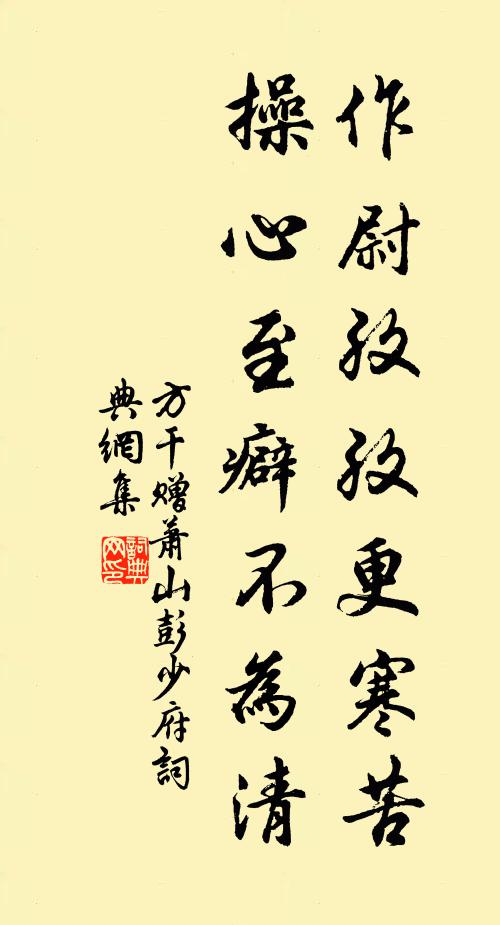 作尉孜孜更寒苦
操心至癖不為清
方干赠蕭山彭少府詞
典網集
詞典
网印